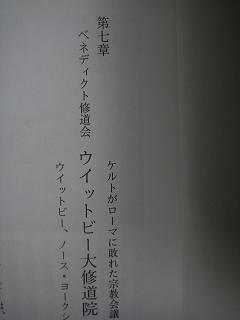 第七章
ベネディクト修道会
ウイットビー大修道院
ウイットビー、ノース・ヨークシ
ケルトがローマに敗れた宗教会議